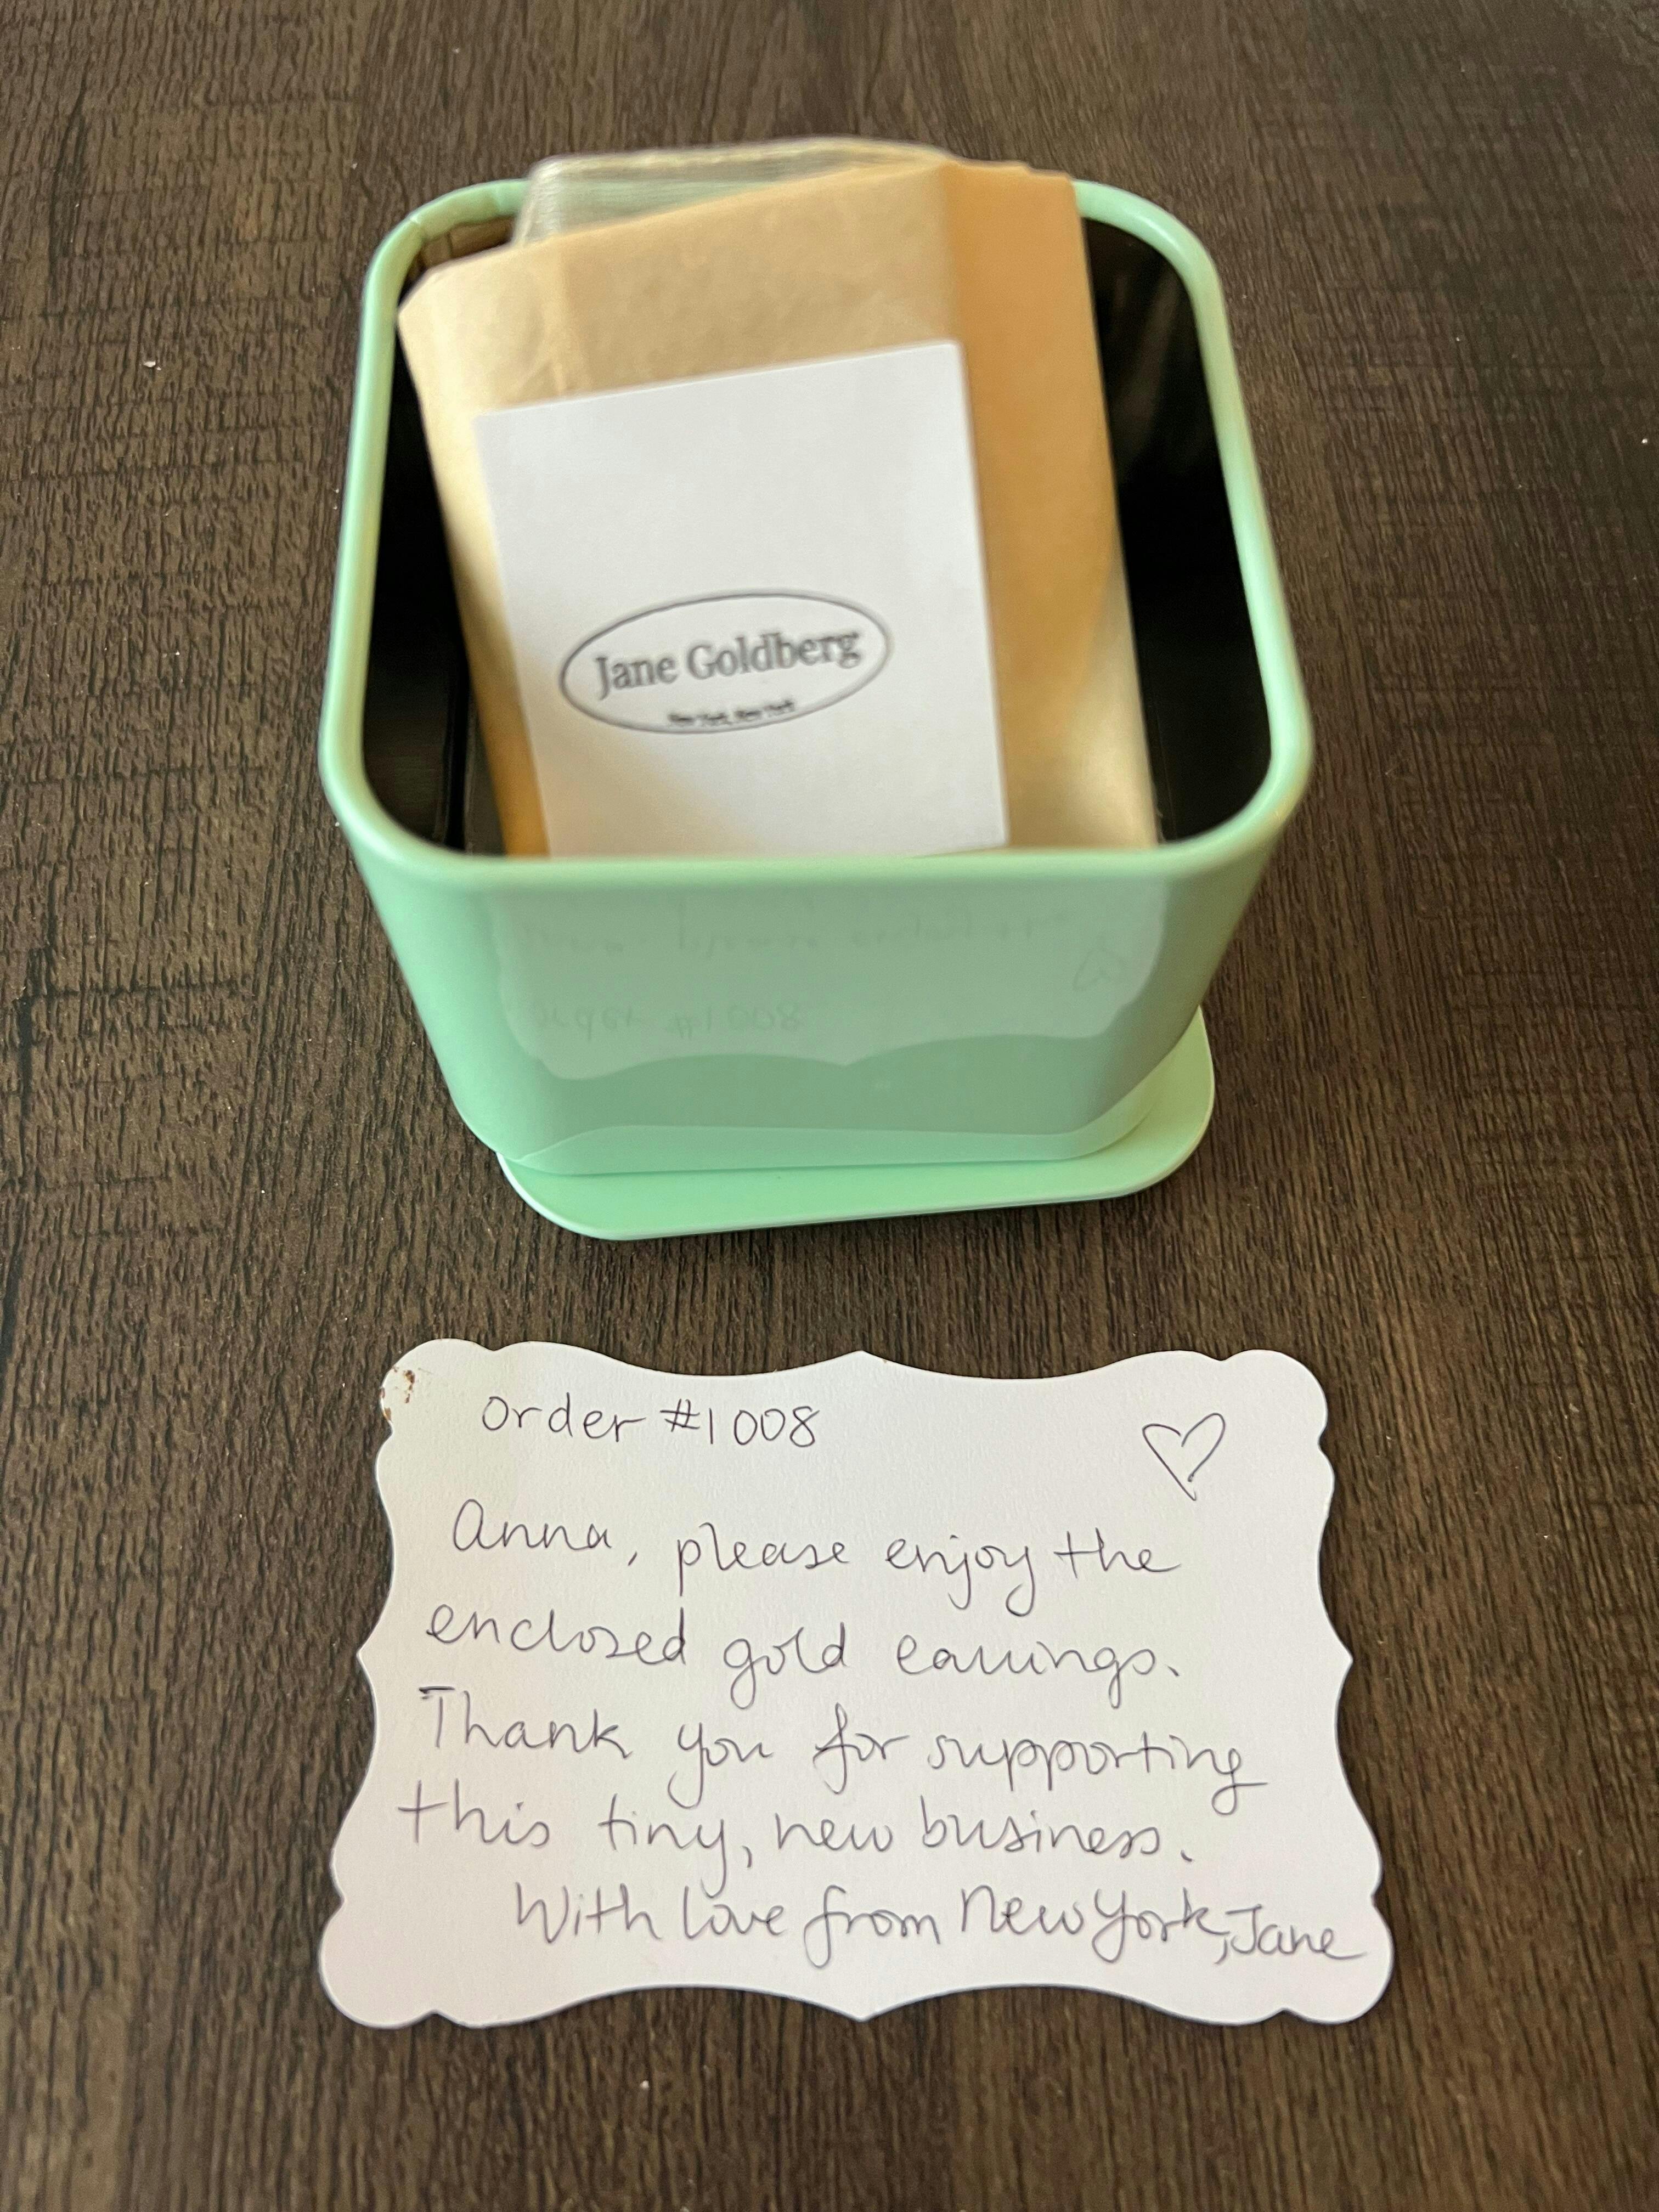 Jane Goldberg
New York, New York
order #1008
Anna, please enjoy the
enclosed gold earrings.
Thank you for supporting
this tiny, new business.
With love from New York, Jane